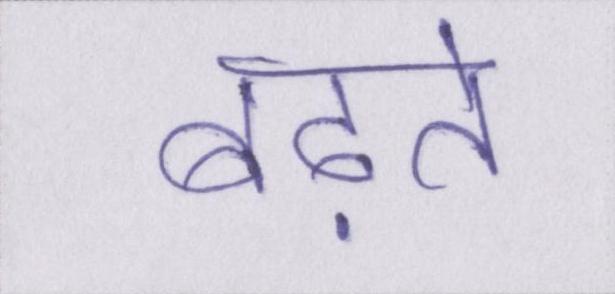 बढ़ते